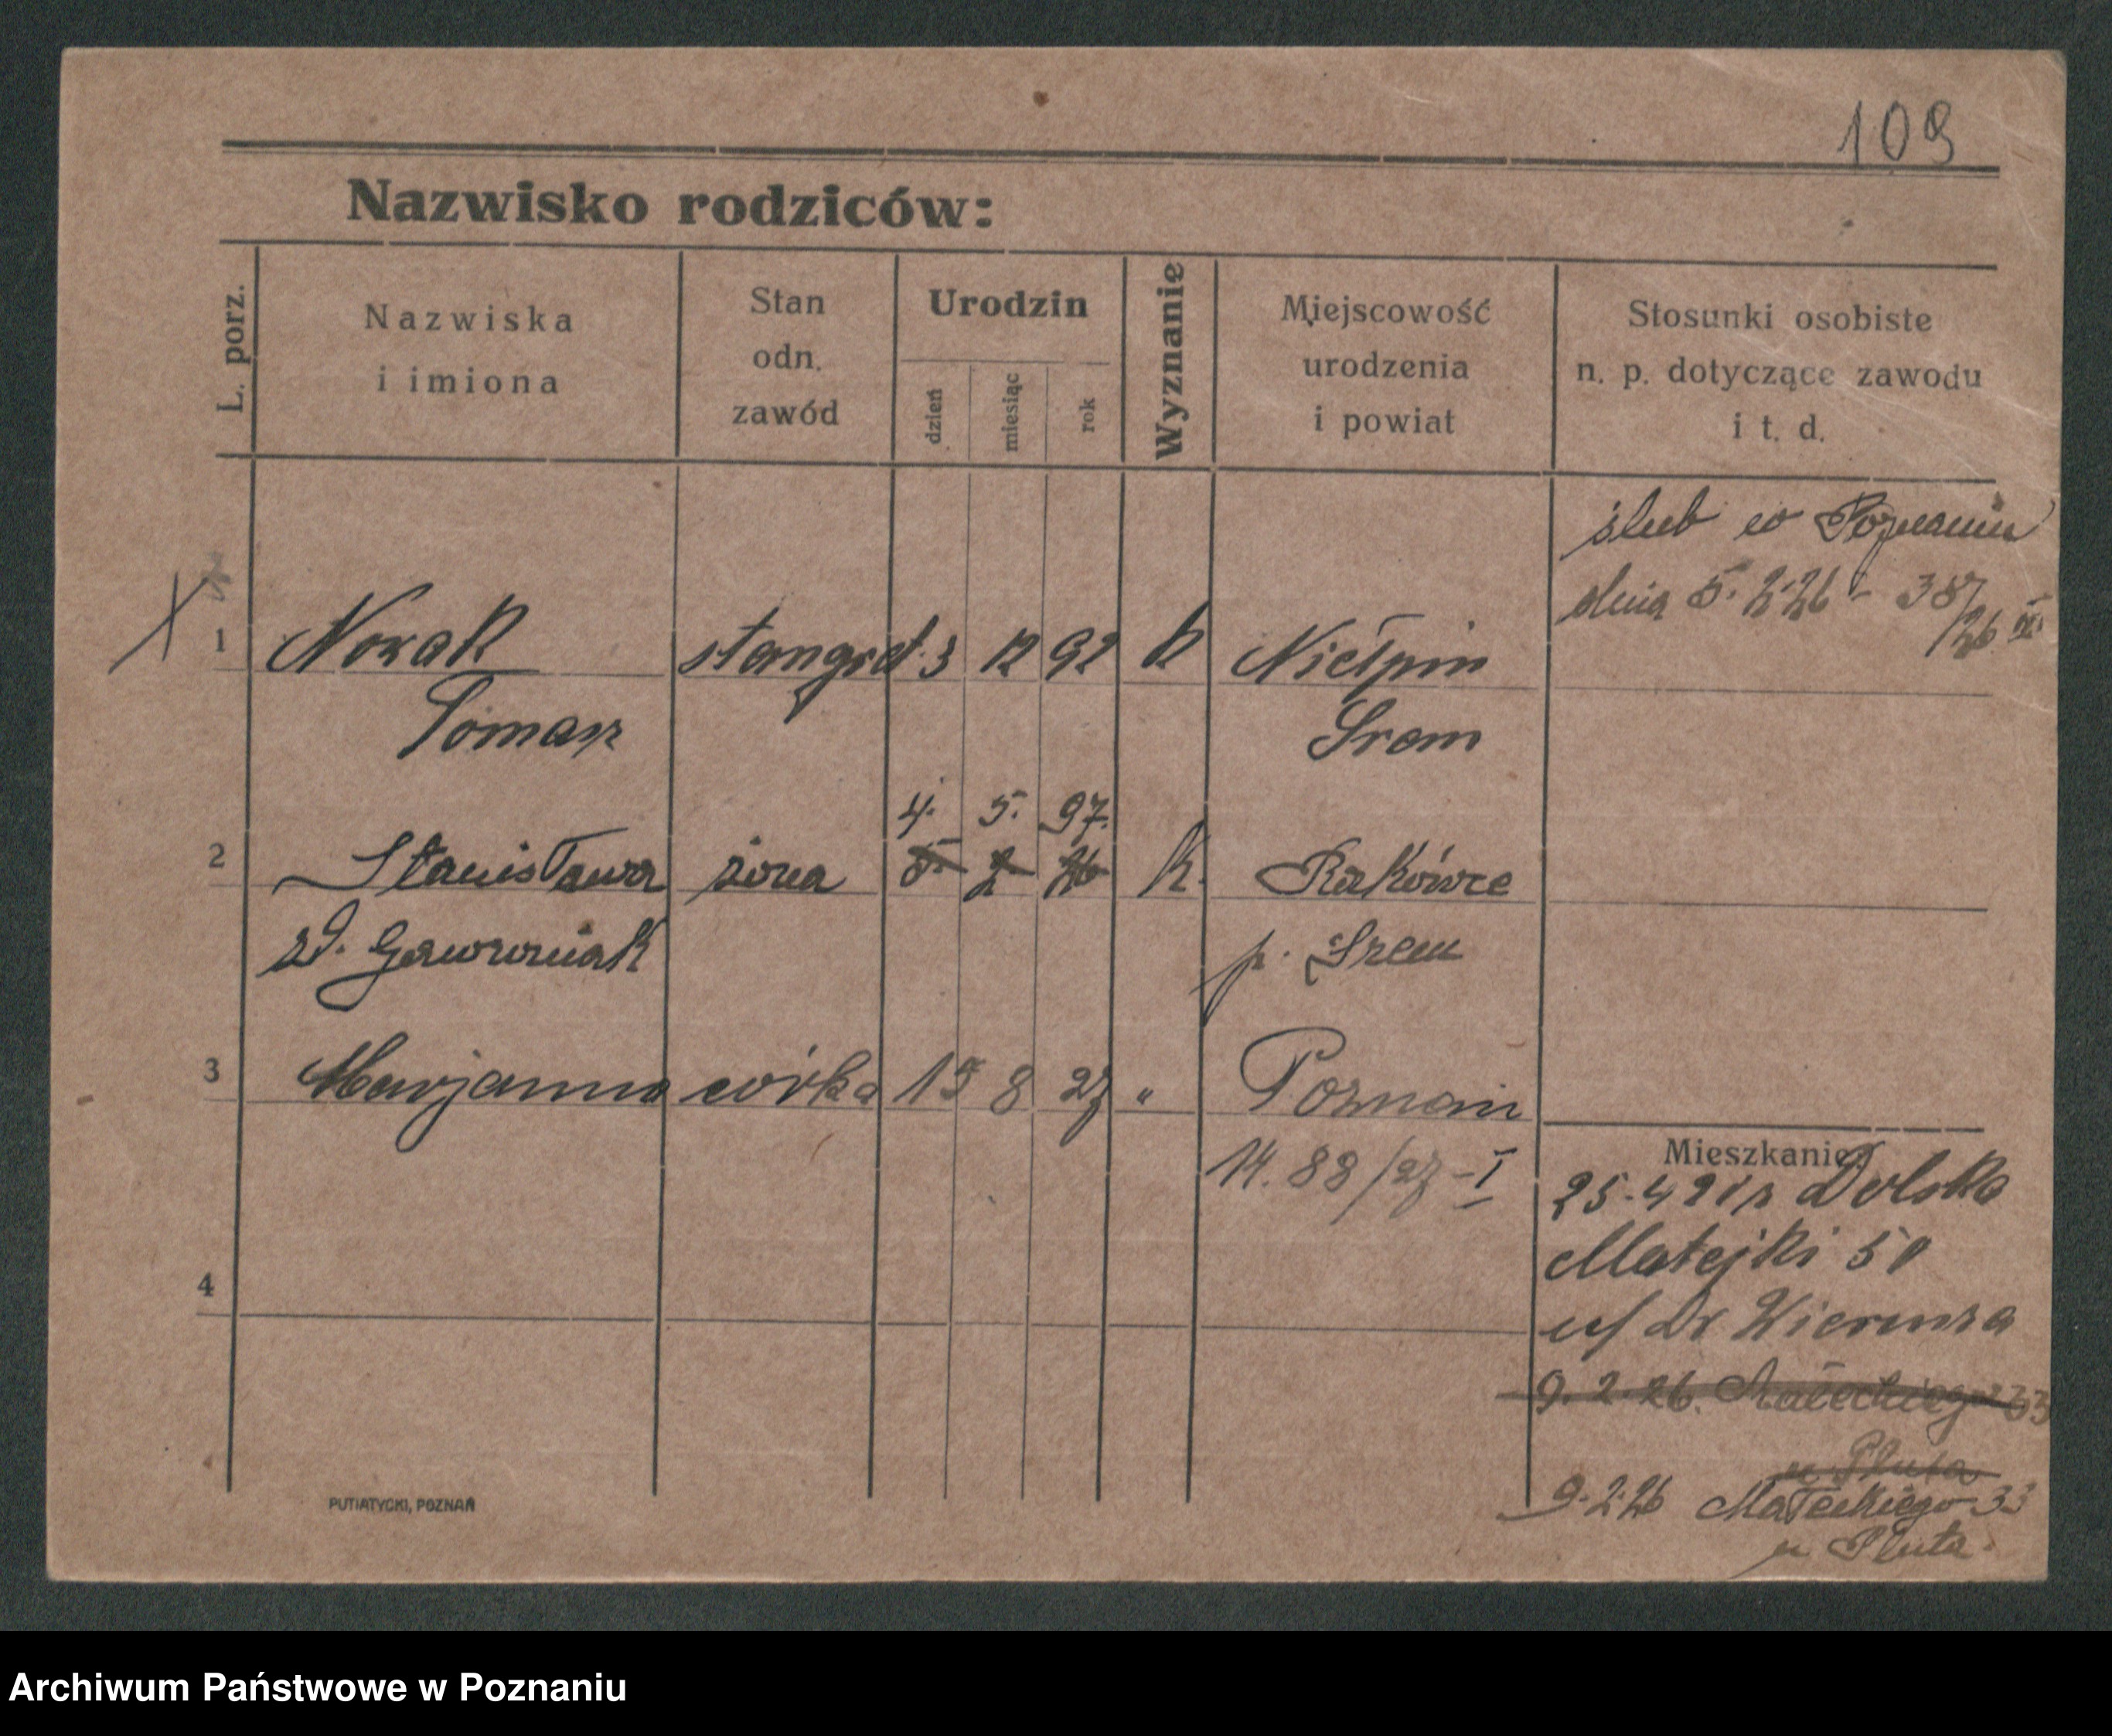 109
Nazwisko rodziców:
L. porz.
Nazwiska
i imiona
Stan
odn.
zawód
Urodzin
dzień
miesiąc
rok
Wyznanie
Miejscowość
urodzenia
i powiat
Stosunki osobiste
n. p. dotyczące zawodu
i t. d.
ślub w Poznaniu
dnia 5. 2.26 -
X
1 Nowak stangret 3 12 92 k
Tomasz Srem
4. 5. 97.
2 Stanisława żona 5. 2 26 k. Rakówce
zd. Gawroniak p. Srem
3 Marjanna córka 15 8 27 " Poznań
14.88/27-I
Mieszkanie:
Dolsko
Matejki 50
u/ Dr
4
9.2.26. Małeckiego 33
u Pluta
9.2.26 Małeckiego 33
u Pluta.
PUTIATYCKI, POZNAŃ
Archiwum Państwowe w Poznaniu